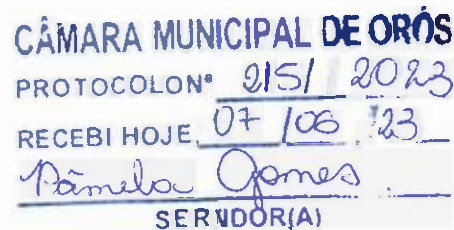 CÂMARA MUNICIPAL DE ORÓS
PROTOCOLO Nº 215/ 2023
RECEBI HOJE, 07 /06 /23
Pâmela Gomes
SERVIDOR(A)